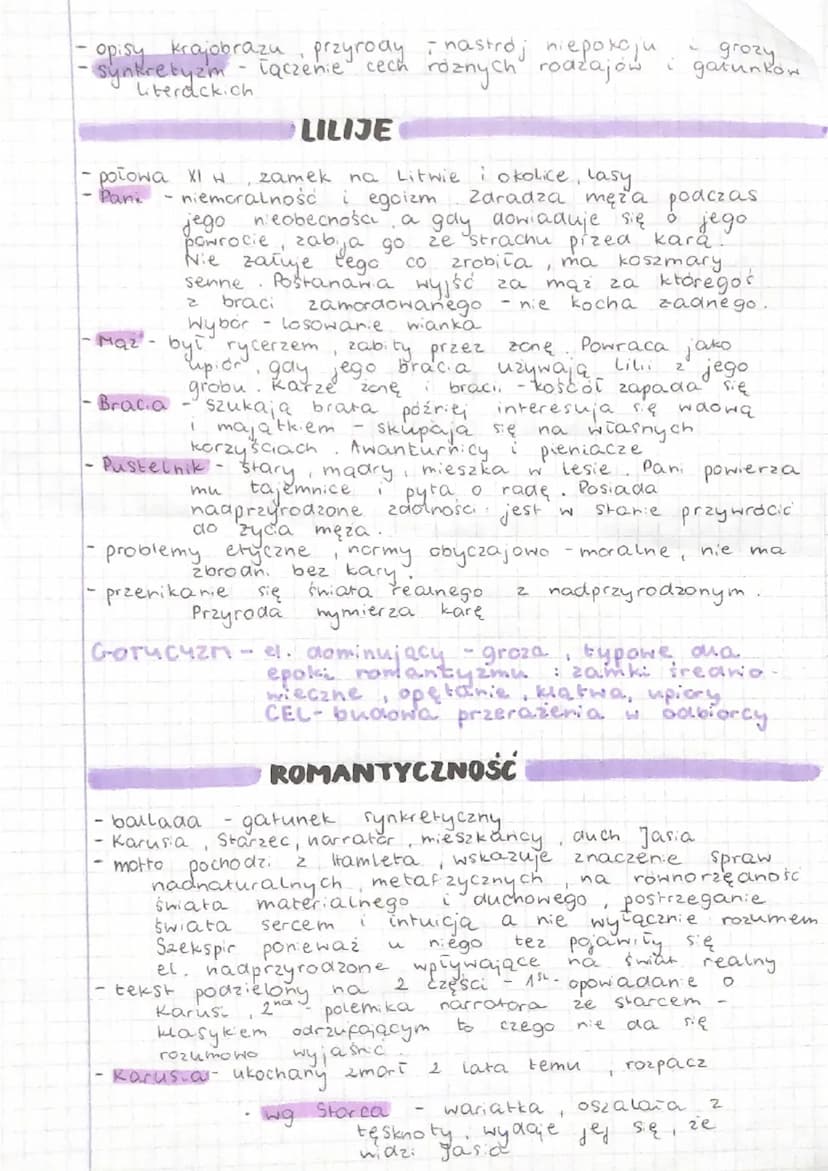 - opisy krajobrazu, przyrody, nastrój niepokoju i grozy
- synkretyzm - łączenie cech różnych rodzajów i gatunków
literackich
LILIJE
- połowa XI w, zamek na Litwie i okolice, lasy
- Pani - niemoralność i egoizm. Zdradza męża podczas
jego nieobecności, a gdy dowiaduje się o jego
powrocie, zabija go ze strachu przed karą.
Nie żałuje tego co zrobiła, ma koszmary
senne. Postanawia wyjść za mąż za któregoś
z braci zamordowanego - nie kocha żadnego.
Wybór - losowanie wianka
- Mąż - był rycerzem, zabity przez żonę. Powraca jako
upiór, gdy jego bracia używają lilii z jego
grobu. Karze żonę i braci. - kościół zapada się
- Bracia - szukają brata później interesują się wdową
i majątkiem - skupiają się na własnych
korzyściach. Awanturnicy i pieniacze
- Pustelnik - stary, mądry, mieszka w lesie. Pani powierza
mu tajemnice i pyta o radę. Posiada
nadprzyrodzone zdolności. jest w stanie przywrócić
do życia męża.
- problemy etyczne, normy obyczajowo - moralne, nie ma
zbrodni bez kary.
- przenikanie się świata realnego z nadprzyrodzonym.
Przyroda wymierza karę
GOTYCYZM - el. dominujący - groza, typowe dla
epoki romantyzmu : zamki średnio-
wieczne, opętanie, klątwa, upiory
CEL - budowa przerażenia w odbiorcy
ROMANTYCZNOŚĆ
- ballada - gatunek synkretyczny
- Karusia, Starzec, narrator, mieszkańcy, duch Jasia
- motto pochodzi z Hamleta, wskazuje znaczenie spraw
nadnaturalnych, metafizycznych, na równorzędność
świata materialnego i duchowego, postrzeganie
świata sercem i intuicją a nie wyłącznie rozumem
Szekspir ponieważ u niego też pojawiły się
el. nadprzyrodzone wpływające na świat realny
- tekst podzielony na 2 części - 1st - opowiadanie o
Karusi, 2nd - polemika narratora ze starcem -
klasykiem odrzucającym to czego nie da się
rozumowo wyjaśnić.
- Karusia - ukochany zmarł 2 lata temu, rozpacz
· wg Starca - wariatka, oszalała z
tęsknoty, wydaje jej się, że
widzi Jasia